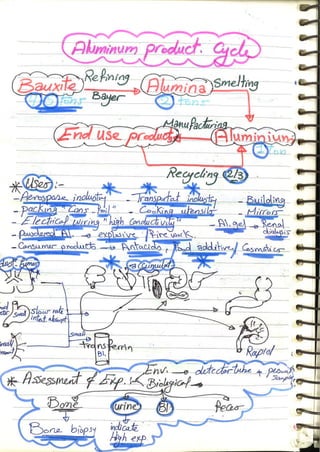 Aluminum product. Cycle
Bauxite Refining Alumina Smelting
Bayer
tons 2 tons
Manufacturing
End use product Aluminium
1 ton
Recycling 2/3
* Uses :-
- Aerospace industry - Transportat industry - Building
- packing "Cans - foil" - Cooking utensils - Mirrors
- Electrical wiring "high conductivity" - Al. gel → Renal dialysis
- powdered Al. → explosive / Fire work.
- Consumer products → Antacids, food additive, Cosmetics
accumulat
dust-fumes
slow rate
intest absorpt
small
small
Transferrin
Bl.
Rapid
Env. → detector tube +
* Assessment of Exp.
Biological
Bone urine Bl Feces
Bone biopsy indicate
High exp